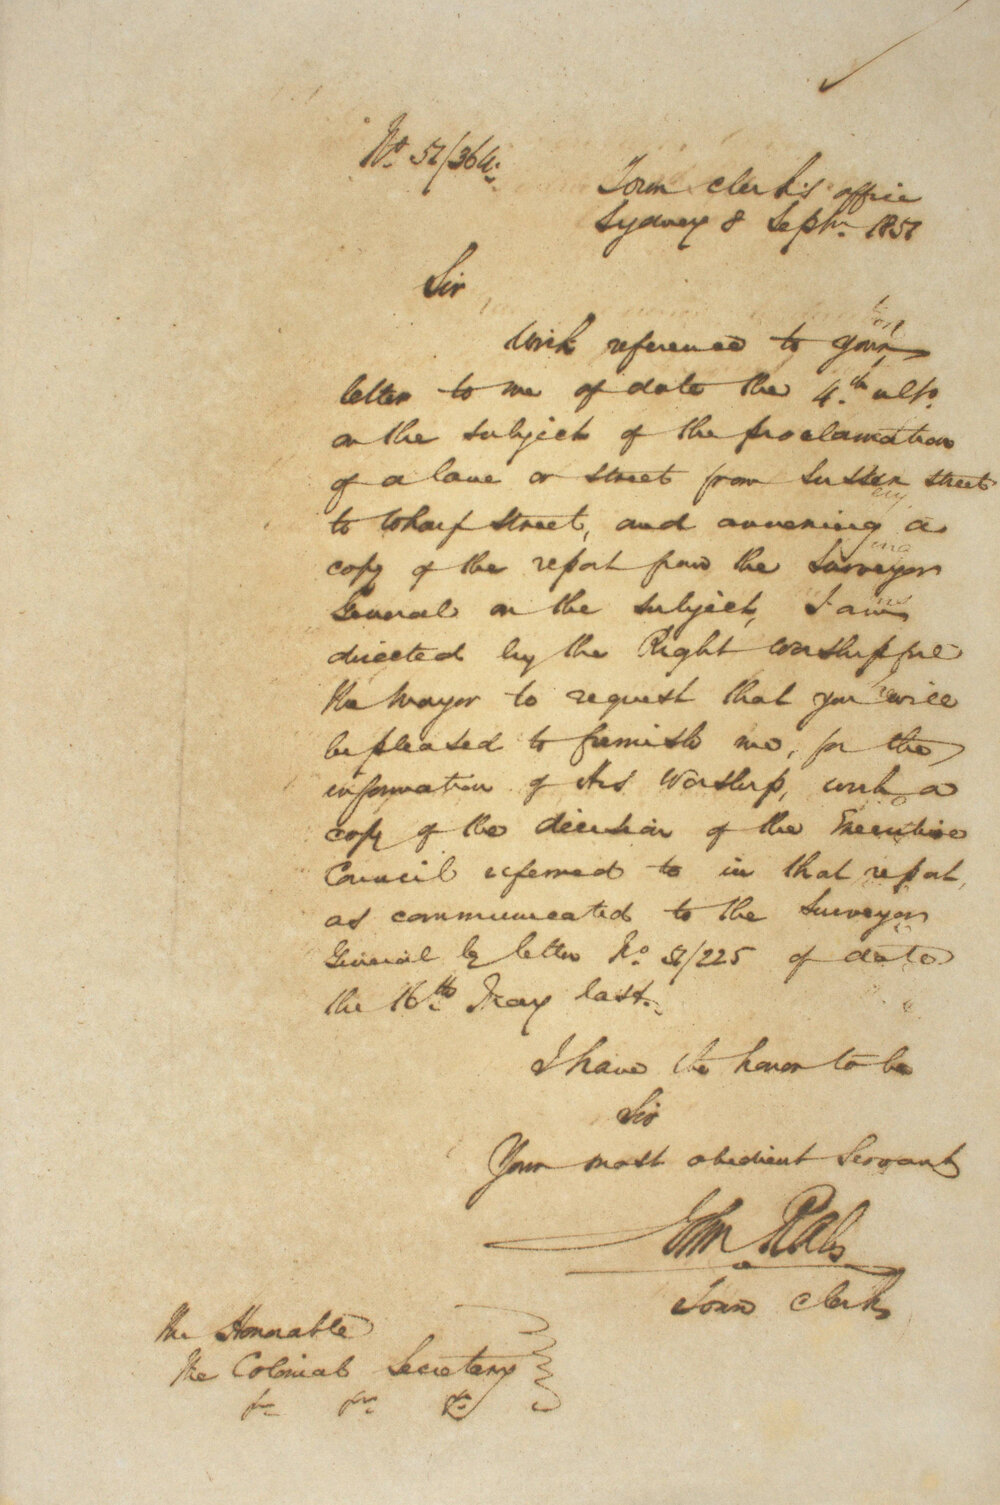 No. 57/364.
Town clerk's office
Sydney 8 Septr. 1857
Sir
With reference to your
letter to me of date the 4.th ulto.
on the subject of the proclamation
of a lane or street from Sussex street
to Wharf Street, and annexing a
copy of the report from the Surveyor
General on the subject, I am
directed by the Right Worshipful
the Mayor to request that you will
be pleased to furnish me, for the
information of His Worship, with a
copy of the decision of the Executive
Council referred to in that report,
as communicated to the Surveyor
General by letter No. 57/225 of date
the 16th May last.
I have the honor to be
Sir
Your most obedient Servant
John
Town Clerk
The Honorable
The Colonial Secretary
&c &c &c